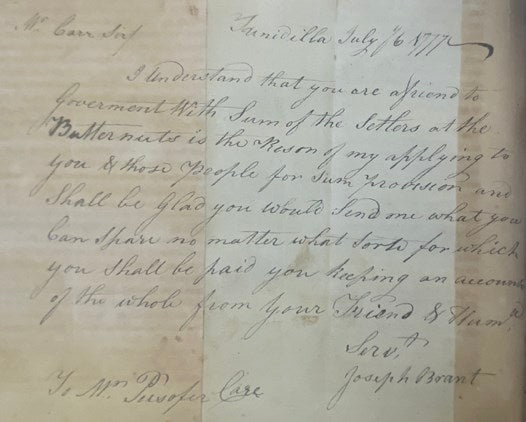 Mr. Carr Sir/ Tunidilla July 16 1777
I Understand that you are afriend to
Goverment With Sum of the Setlers at the
Butternuts is the Reson of my applying to
you & those People for Sum provision and
Shall be Glad you would Send me what you
Can Spare no matter what Sorte for which
you Shall be paid you keeping an account
of the whole from your Friend & Hum.
Serv.t
Joseph Brant
To Mr. Carr